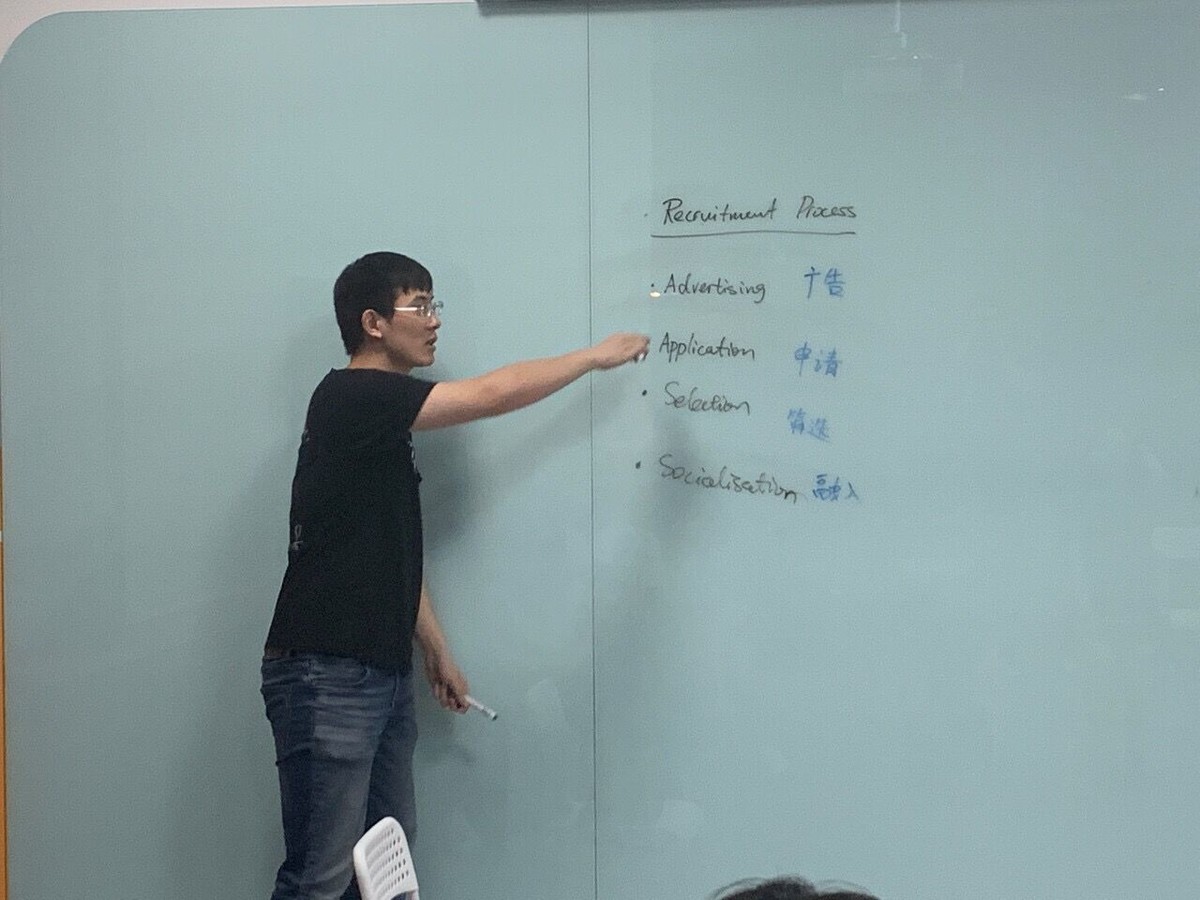 Recruitment Process
• Advertising 广告
Application 申请
• Selection 筛选
• Socialisation 融入